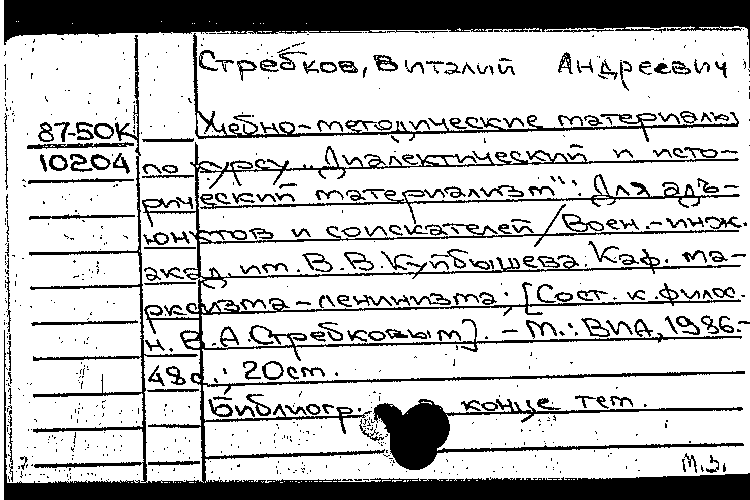 Стребков, Виталий Андреевич
87-50К
Учебно-методические материалы
10204
по курсу „Диалектический и исто-
рический материализм“: Для адъ-
юнктов и соискателей / Воен.-инж.
акад. им. В.В.Куйбышева. Каф. ма-
рксизма-ленинизма; [Сост. к. филос.
н. В.А.Стребковым]. – М.: ВИА, 1986.-
48с.; 20см.
Библиогр. в конце тем.
М.З.